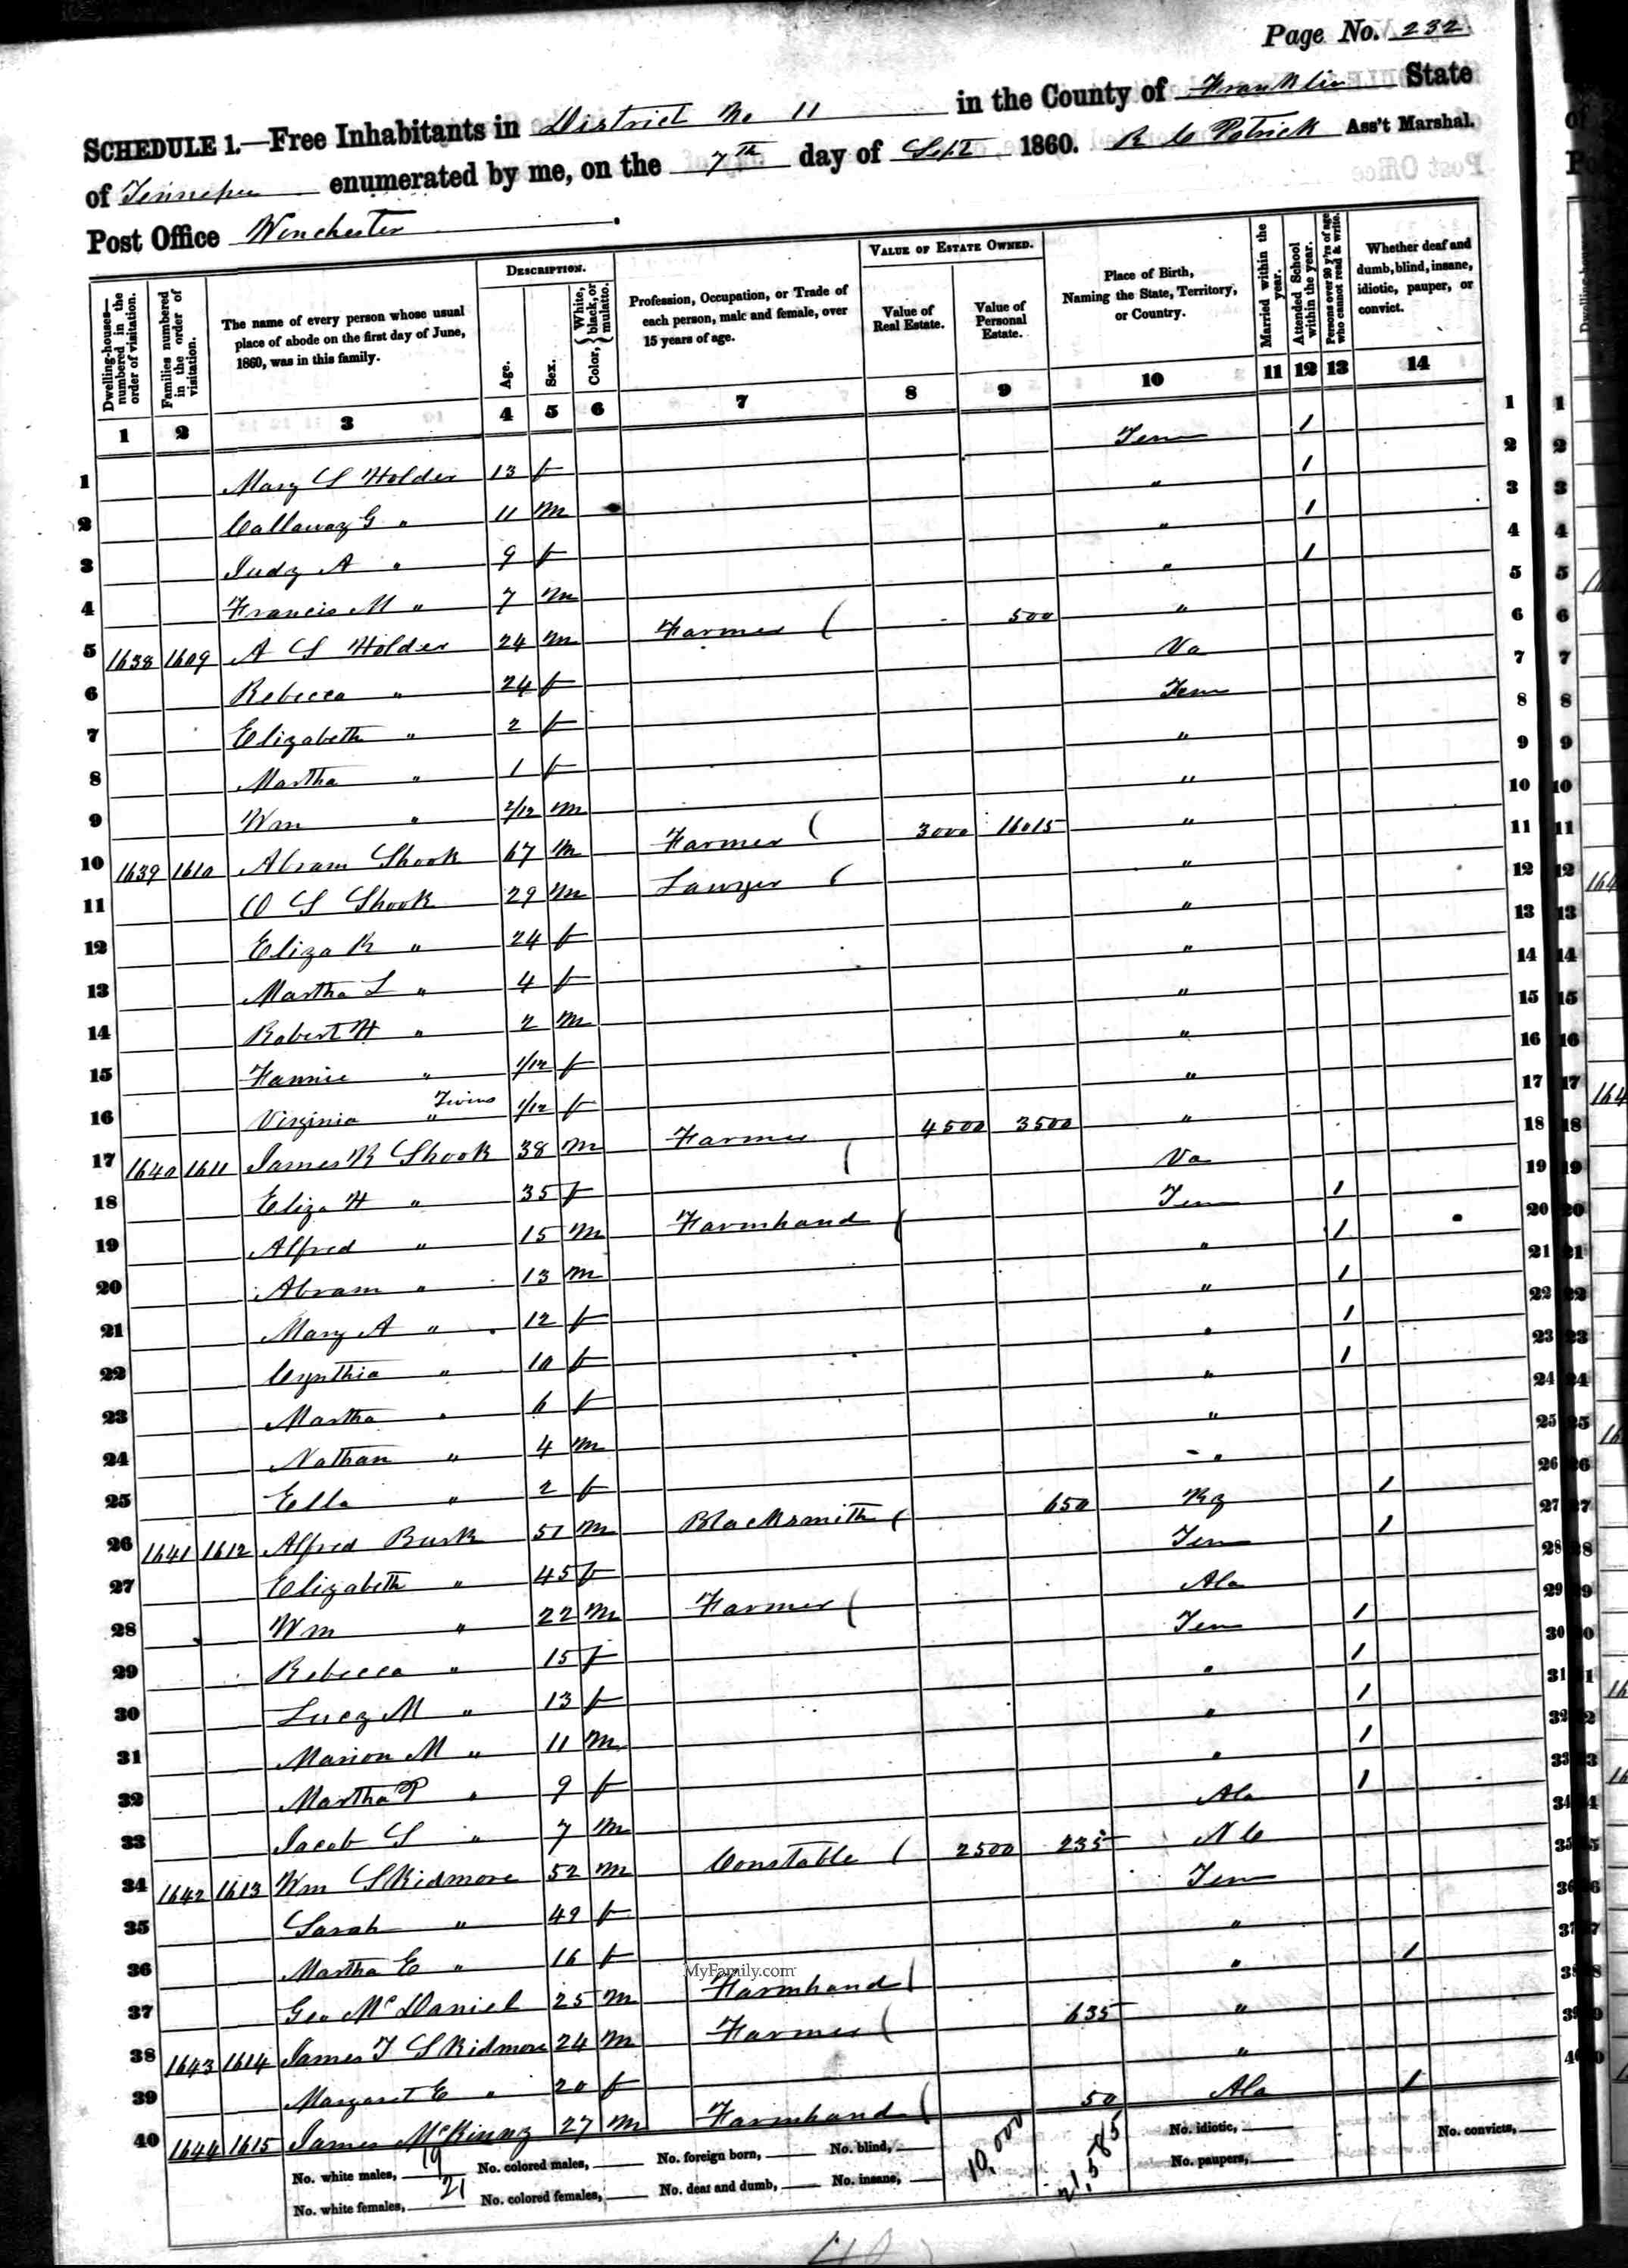 Page No. 232
SCHEDULE 1.—Free Inhabitants in District No 11 in the County of Franklin State
of Tennessee enumerated by me, on the 7th day of Sept 1860. R C Patrick Ass't Marshal.
Post Office Winchester
Dwelling-houses—numbered in the order of visitation.
Families numbered in the order of visitation.
The name of every person whose usual place of abode on the first day of June, 1860, was in this family.
DESCRIPTION.
Age.
Sex.
Color, { White, black, or mulatto.
Profession, Occupation, or Trade of each person, male and female, over 15 years of age.
VALUE OF ESTATE OWNED.
Value of Real Estate.
Value of Personal Estate.
Place of Birth, Naming the State, Territory, or Country.
Married within the year.
Attended School within the year.
Persons over 20 y'rs of age who cannot read & write.
Whether deaf and dumb, blind, insane, idiotic, pauper, or convict.
1 2 3 4 5 6 7 8 9 10 11 12 13 14
1 Mary S Holder 13 f Ten 1 1
2 Callaway G " 11 m " 1 2
3 Judy A " 9 f " 1 3
4 Francis M " 7 m " 1 4
5 1638 1609 A S Holder 24 m Farmer 500 " 5
6 Rebecca " 24 f Va 6
7 Elizabeth " 2 f Ten 7
8 Martha " 1 f " 8
9 Wm " 2/12 m " 9
10 1639 1610 Abram Shook 67 m Farmer 3000 16015 " 10
11 W S Shook 29 m Lawyer " 11
12 Eliza R " 24 f " 12
13 Martha L " 4 f " 13
14 Robert H " 2 m " 14
15 Fannie " 1/12 f " 15
16 Virginia " Twins 1/12 f " 16
17 1640 1611 James R Shook 38 m Farmer 4500 3500 " 17
18 Eliza H " 35 f Va 18
19 Alfred " 15 m Farmhand Ten 1 19
20 Abram " 13 m " 1 20
21 Mary A " 12 f " 1 21
22 Cynthia " 10 f " 1 22
23 Martha " 6 f " 1 23
24 Nathan " 4 m " 24
25 Ella " 2 f " 25
26 1641 1612 Alfred Busk 51 m Blacksmith 650 Ky 1 26
27 Elizabeth " 45 f Ten 1 27
28 Wm " 22 m Farmer Ala 28
29 Rebecca " 15 f Ten 1 29
30 Lucy M " 13 f " 1 30
31 Marion M " 11 m " 1 31
32 Martha P " 9 f " 1 32
33 Jacob S " 7 m Ala 1 33
34 1642 1613 Wm Skidmore 52 m Constable 2500 235 N C 34
35 Sarah " 49 f Ten 35
36 Martha E " 16 f " 36
37 Geo McDaniel 25 m Farmhand " 1 37
38 1643 1614 James T Skidmore 24 m Farmer 635 " 38
39 Margaret E " 20 f " 39
40 1644 1615 James McKinny 27 m Farmhand 50 Ala 1 40
MyFamily.com
No. white males, 19 No. colored males, No. foreign born, No. blind, 10,000 21,585 No. idiotic, No. convicts,
No. white females, 21 No. colored females, No. deaf and dumb, No. insane, No. paupers,